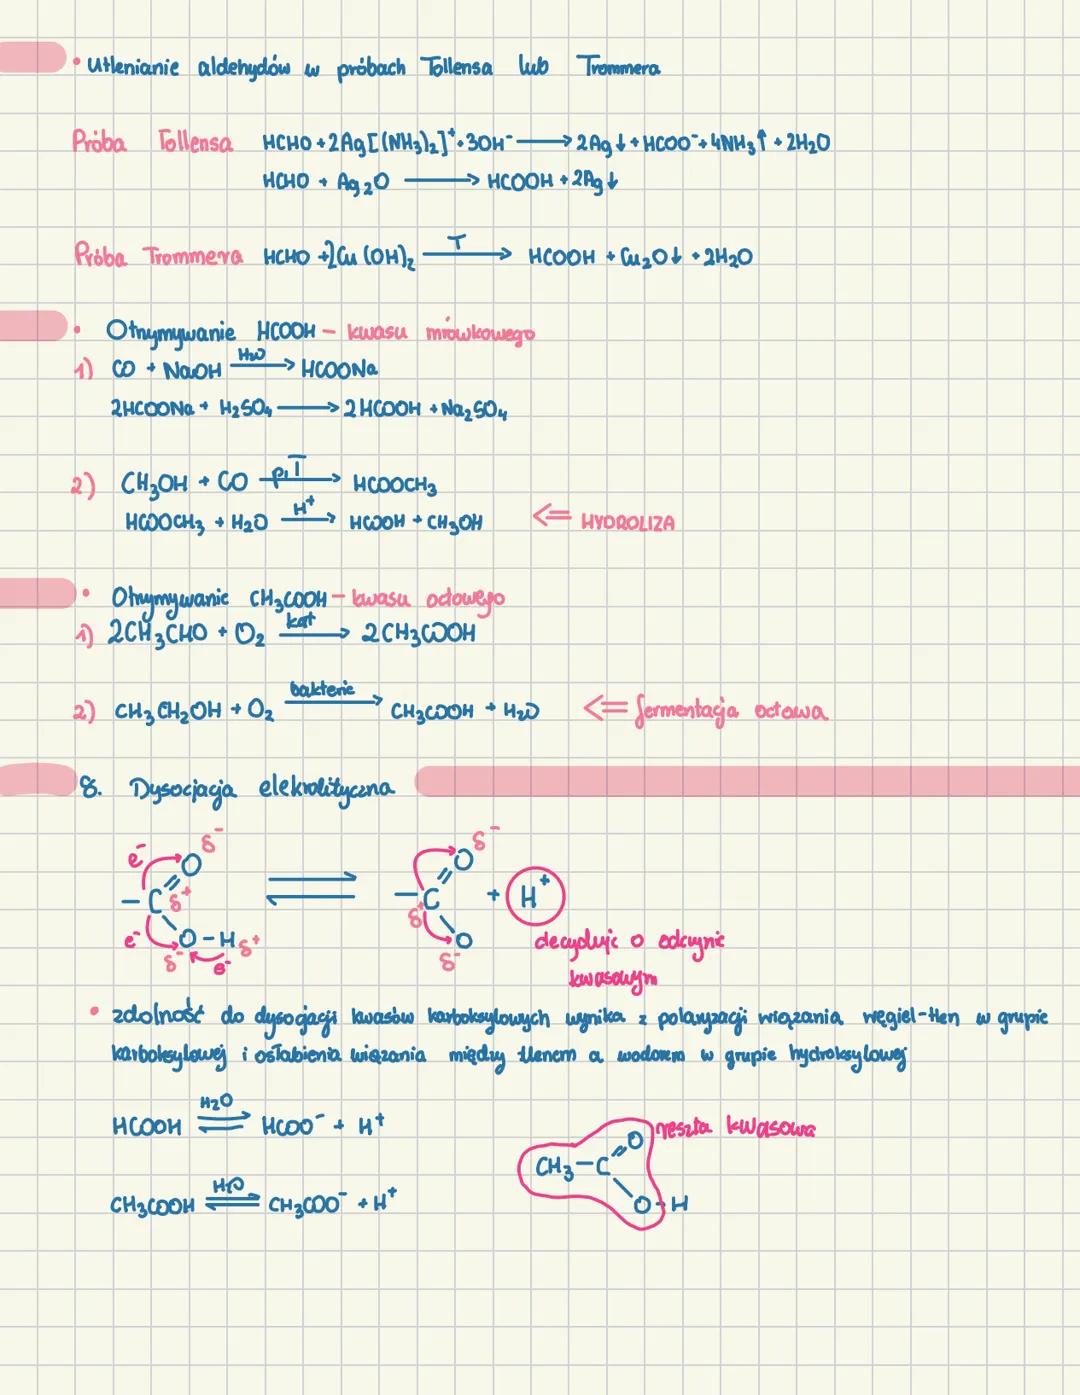 • Utlenianie aldehydów w próbach Tollensa lub Trommera
Próba Tollensa HCHO + 2Ag[(NH₃)₂]⁺ + 3OH⁻ ⟶ 2Ag↓ + HCOO⁻ + 4NH₃↑ + 2H₂O
HCHO + Ag₂O ⟶ HCOOH + 2Ag↓
Próba Trommera HCHO + 2Cu(OH)₂ T⟶ HCOOH + Cu₂O↓ + 2H₂O
• Otrzymywanie HCOOH – kwasu mrówkowego
1) CO + NaOH H₂O⟶ HCOONa
2HCOONa + H₂SO₄ ⟶ 2HCOOH + Na₂SO₄
2) CH₃OH + CO p,T⟶ HCOOCH₃
HCOOCH₃ + H₂O H⁺⟶ HCOOH + CH₃OH ⇐ HYDROLIZA
• Otrzymywanie CH₃COOH – kwasu octowego
1) 2CH₃CHO + O₂ kat⟶ 2CH₃COOH
2) CH₃CH₂OH + O₂ bakterie⟶ CH₃COOH + H₂O ⇐ fermentacja octowa
8. Dysocjacja elekrolityczna
e⁻ O δ⁻
– C δ⁺
e⁻ O – H δ⁺
δ⁻ e⁻
⇌
O δ⁻
– C δ⁺ + H⁺
O
δ⁻
decyduje o odczynie
kwasowym
• zdolność do dysocjacji kwasów karboksylowych wynika z polaryzacji wiązania węgiel-tlen w grupie
karboksylowej i osłabienia wiązania między tlenem a wodorem w grupie hydroksylowej
HCOOH H₂O⇌ HCOO⁻ + H⁺
reszta kwasowa
CH₃ – C = O
O – H
CH₃COOH H₂O⇌ CH₃COO⁻ + H⁺